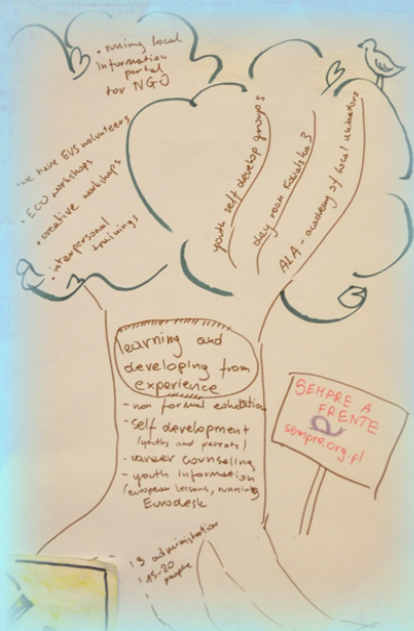 • runing local
information
portal
for NGO
• we have EVS volunteers
• ECO workshops
• creative workshops
• interpersonal
trainings
youth self develop groups
day room Kowalska 3
ALA - academy of local animators
learning and
developing from
experience
- non formal education
- self development
(youths and parents)
- career counseling
- youth information
(european lessons, running
Eurodesk
• 3 administration
• 15-20
people
SEMPRE A
FRENTE
sempre.org.pl